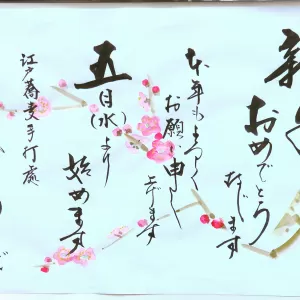 新しく
おめでとう
ございます
本年もよろしく
お願い申し
上げます
五日(水)より
始めます
江戸蕎麦手打處